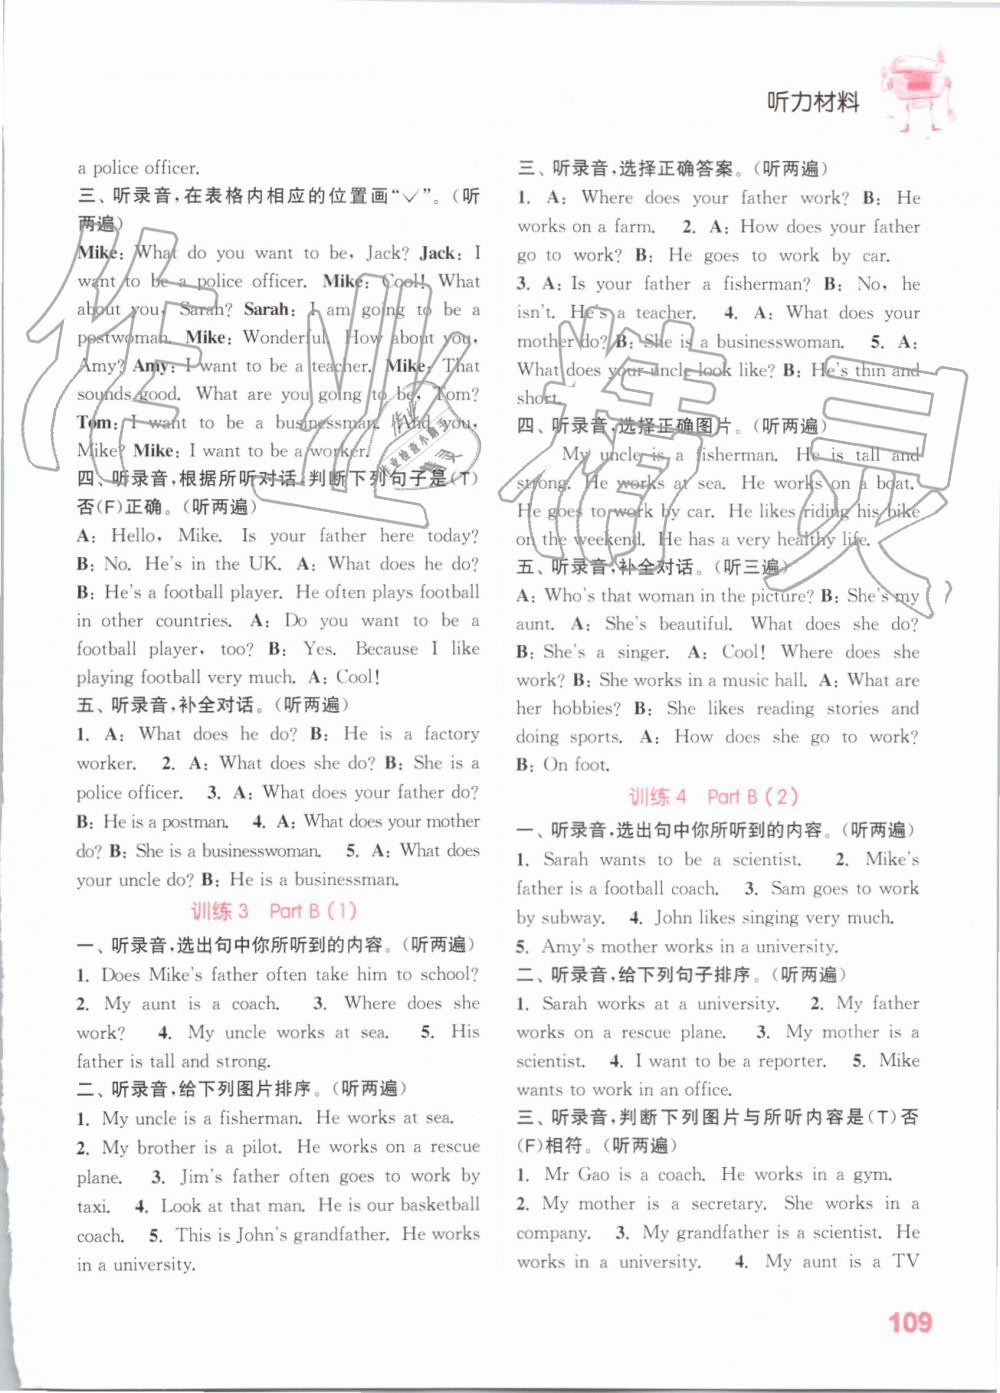 听力材料
a police officer.
三、听录音,在表格内相应的位置画“✓”。(听
两遍)
Mike: What do you want to be, Jack? Jack: I
want to be a police officer. Mike: Cool! What
about you, Sarah? Sarah: I am going to be a
postwoman. Mike: Wonderful. How about you,
Amy? Amy: I want to be a teacher. Mike: That
sounds good. What are you going to be, Tom?
Tom: I want to be a businessman. And you,
Mike? Mike: I want to be a worker.
四、听录音,根据所听对话,判断下列句子是(T)
否(F)正确。(听两遍)
A: Hello, Mike. Is your father here today?
B: No. He's in the UK. A: What does he do?
B: He's a football player. He often plays football
in other countries. A: Do you want to be a
football player, too? B: Yes. Because I like
playing football very much. A: Cool!
五、听录音,补全对话。(听两遍)
1. A: What does he do? B: He is a factory
worker. 2. A: What does she do? B: She is a
police officer. 3. A: What does your father do?
B: He is a postman. 4. A: What does your mother
do? B: She is a businesswoman. 5. A: What does
your uncle do? B: He is a businessman.
训练3 Part B(1)
一、听录音,选出句中你所听到的内容。(听两遍)
1. Does Mike's father often take him to school?
2. My aunt is a coach. 3. Where does she
work? 4. My uncle works at sea. 5. His
father is tall and strong.
二、听录音,给下列图片排序。(听两遍)
1. My uncle is a fisherman. He works at sea.
2. My brother is a pilot. He works on a rescue
plane. 3. Jim's father often goes to work by
taxi. 4. Look at that man. He is our basketball
coach. 5. This is John's grandfather. He works
in a university.
三、听录音,选择正确答案。(听两遍)
1. A: Where does your father work? B: He
works on a farm. 2. A: How does your father
go to work? B: He goes to work by car.
3. A: Is your father a fisherman? B: No, he
isn't. He's a teacher. 4. A: What does your
mother do? B: She is a businesswoman. 5. A:
What does your uncle look like? B: He's thin and
short.
四、听录音,选择正确图片。(听两遍)
My uncle is a fisherman. He is tall and
strong. He works at sea. He works on a boat.
He goes to work by car. He likes riding his bike
on the weekend. He has a very healthy life.
五、听录音,补全对话。(听三遍)
A: Who's that woman in the picture? B: She's my
aunt. A: She's beautiful. What does she do?
B: She's a singer. A: Cool! Where does she
work? B: She works in a music hall. A: What are
her hobbies? B: She likes reading stories and
doing sports. A: How does she go to work?
B: On foot.
训练4 Part B(2)
一、听录音,选出句中你所听到的内容。(听两遍)
1. Sarah wants to be a scientist. 2. Mike's
father is a football coach. 3. Sam goes to work
by subway. 4. John likes singing very much.
5. Amy's mother works in a university.
二、听录音,给下列句子排序。(听两遍)
1. Sarah works at a university. 2. My father
works on a rescue plane. 3. My mother is a
scientist. 4. I want to be a reporter. 5. Mike
wants to work in an office.
三、听录音,判断下列图片与所听内容是(T)否
(F)相符。(听两遍)
1. Mr Gao is a coach. He works in a gym.
2. My mother is a secretary. She works in a
company. 3. My grandfather is a scientist. He
works in a university. 4. My aunt is a TV
109
作业精灵